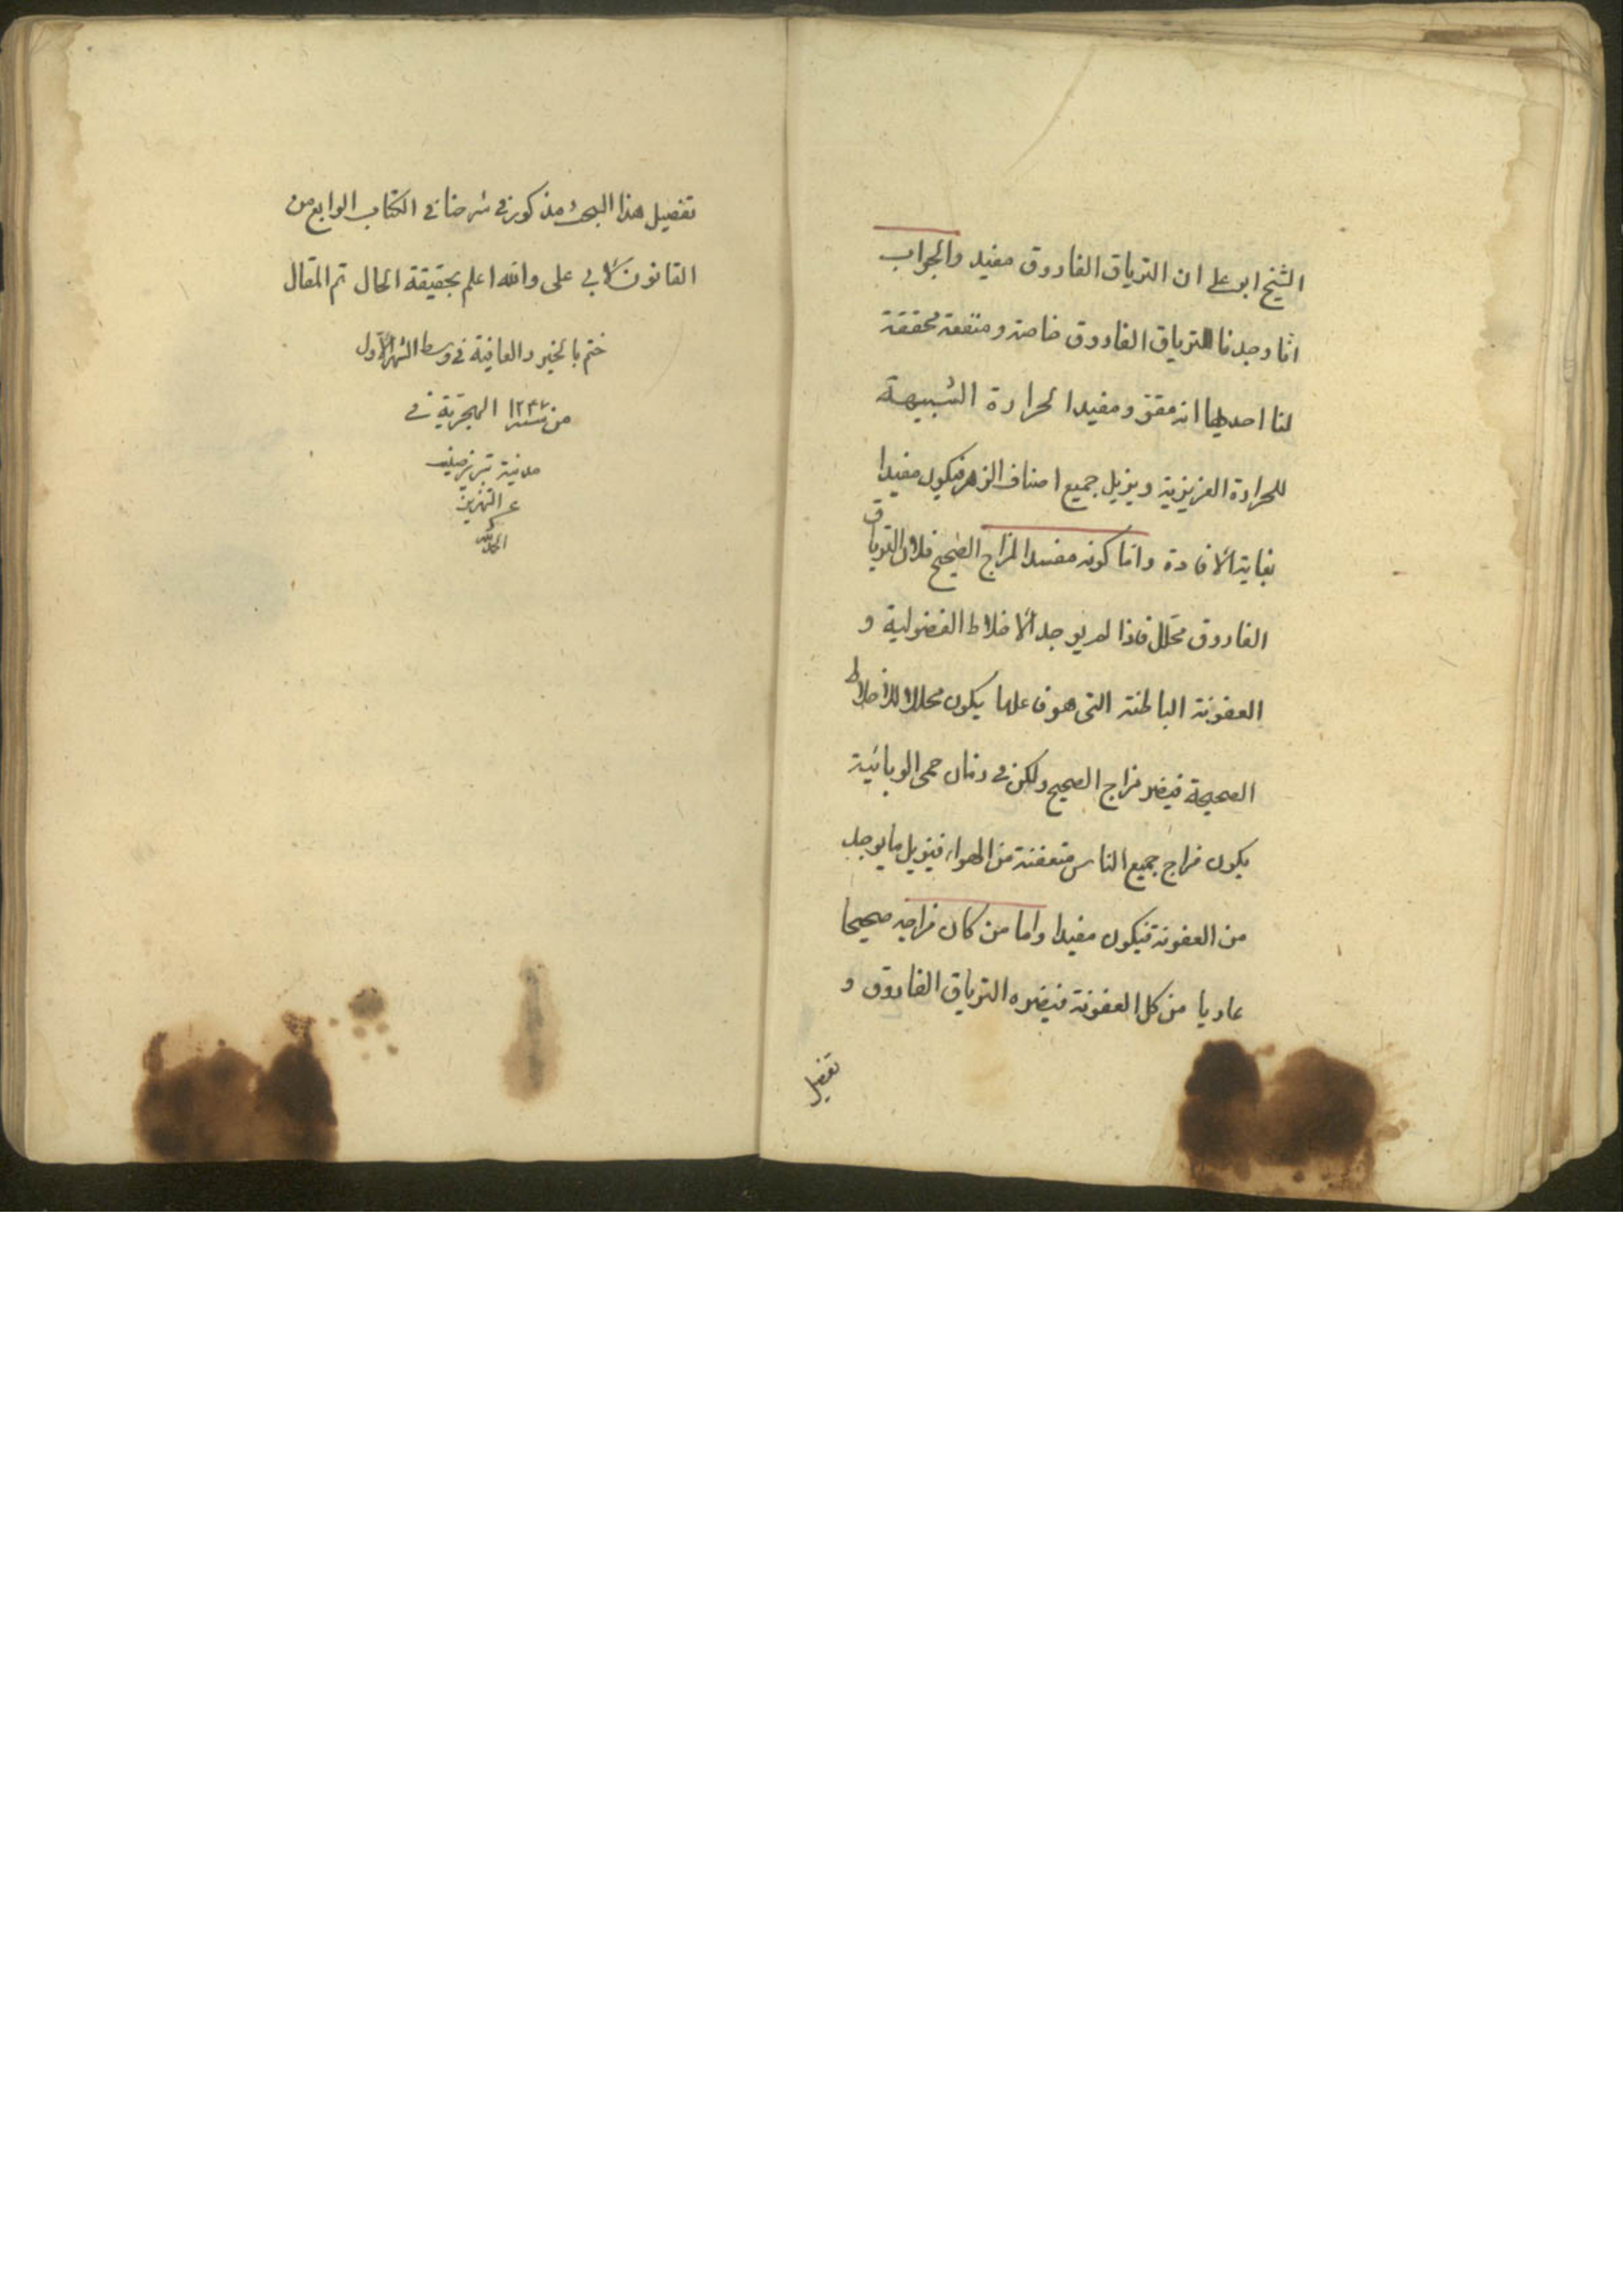 الشیخ ابو علی ان التریاق الفاروق مفید والجواب
انا وجدنا للتریاق الفاروق خاصة و منفعة محققة
لنا احدیها انه مقو و مفید الحرارة الشبیهة
للحرارة الغریزیة و یزیل جمیع اصناف الزهر فیکون مفیدا
بغایة الافادة واما کونه مفسد المزاج الصحیح فلان التریاق
الفاروق محلل فاذا لم یوجد الاخلاط الفضولیة و
العفونة الباطنة التی هو فاعلها یکون محللا للاخلاط
الصحیحة فیضر مزاج الصحیح ولکن فی زمان حمی الوبائیة
یکون مزاج جمیع الناس متعفنة من الهواء فیزیل ما یوجد
من العفونة فیکون مفیدا واما من کان مزاجه صحیحا
عاریا من کل العفونة فیضره التریاق الفاروق و
تفصیل
تفصیل هذا البحث مذکور فی شرحنا فی الکتاب الرابع من
القانون لابی علی والله اعلم بحقیقة الحال تم المقال
ختم بالخیر والعافیة فی وسط الشهر الاول
من سنه ۱۲۴۷ الهجریة فی
مدینة تبریز